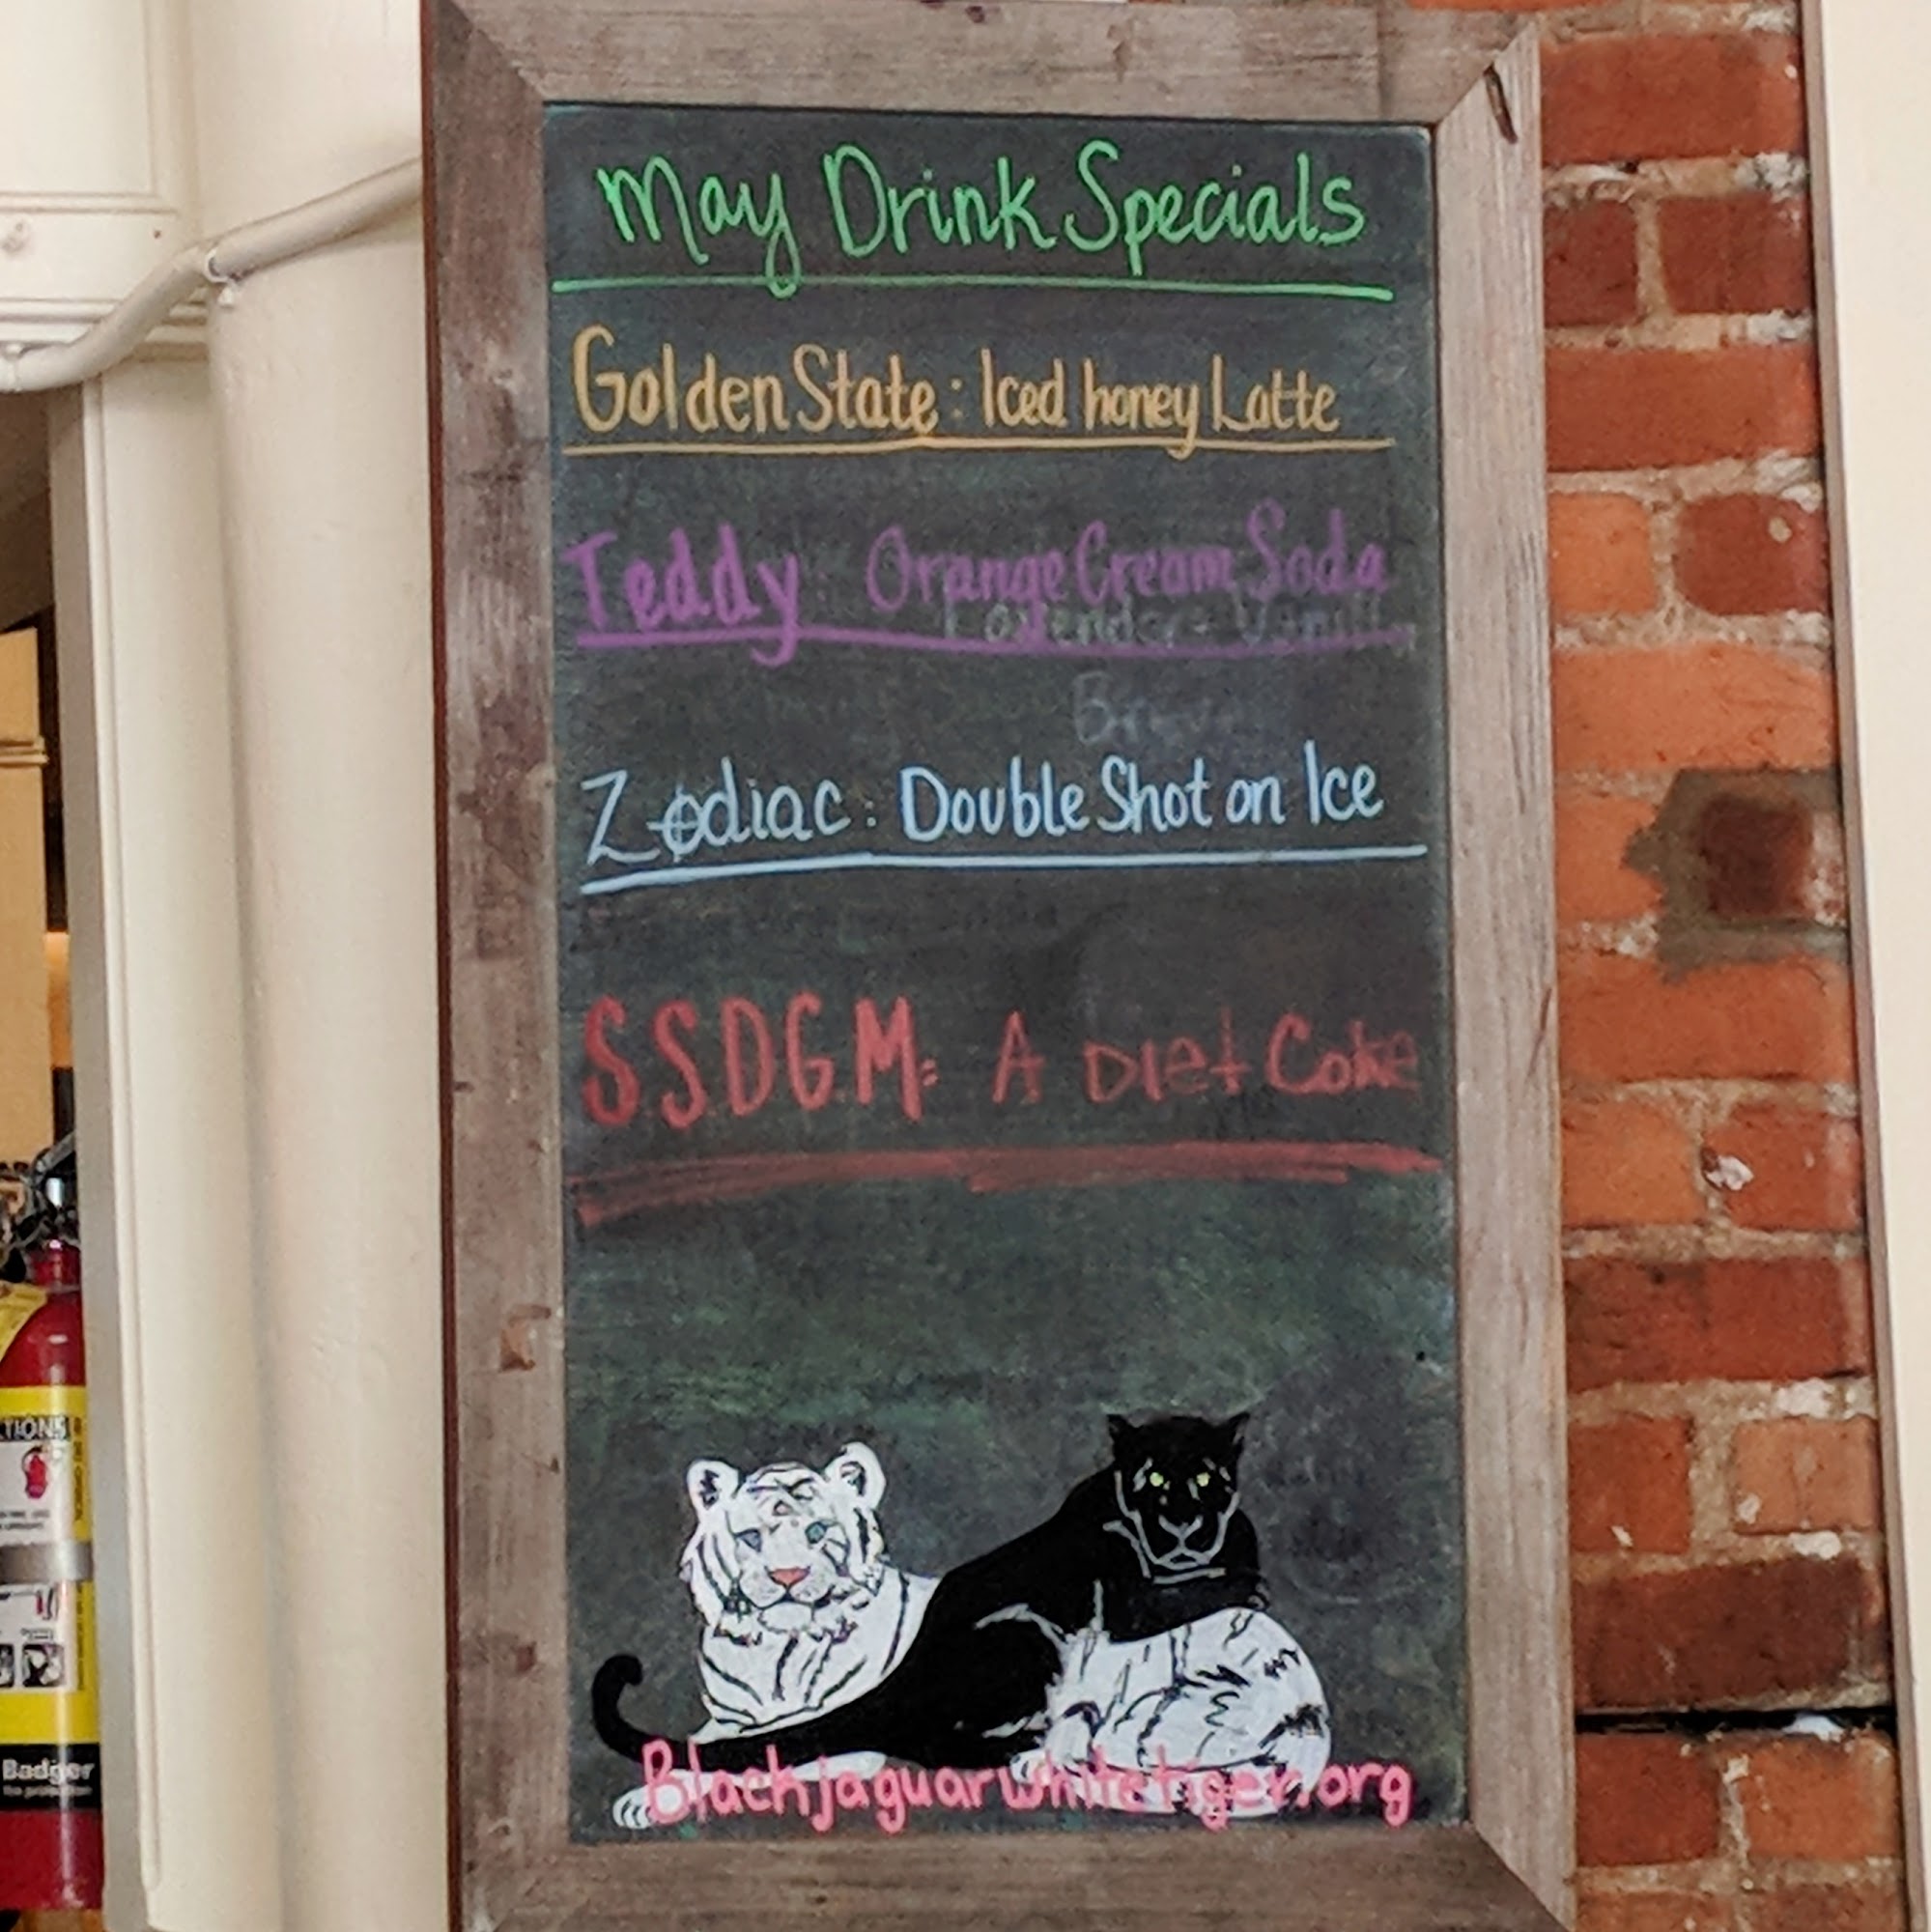 May Drink Specials
Golden State: Iced honey Latte
Teddy: Orange Cream Soda
Zodiac: Double Shot on Ice
S.S.D.G.M: A Diet Coke
Blackjaguarwhitetiger.org
CTIONS
Badger